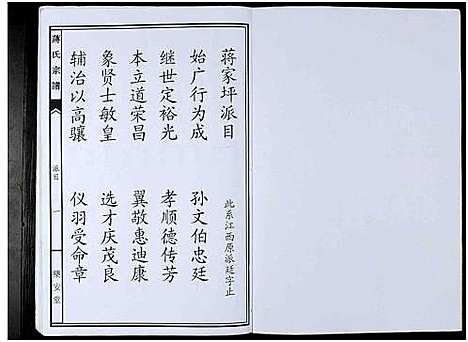 蒋家坪派目
始广行为成 孙文伯忠廷
此系江西原派廷字止
继世定裕光 孝顺德传芳
本立道荣昌 翼敬惠迪康
象贤士敏皇 选才庆茂良
辅治以高骧 仪羽受命章
蒋氏宗谱
派目
一
乐安堂